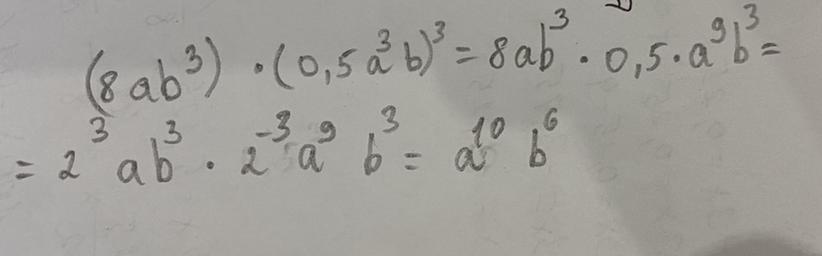 (8ab³) · (0,5a³b)³ = 8ab³ · 0,5 · a⁹b³ =
= 2³ab³ · 2⁻³a⁹b³ = a¹⁰b⁶